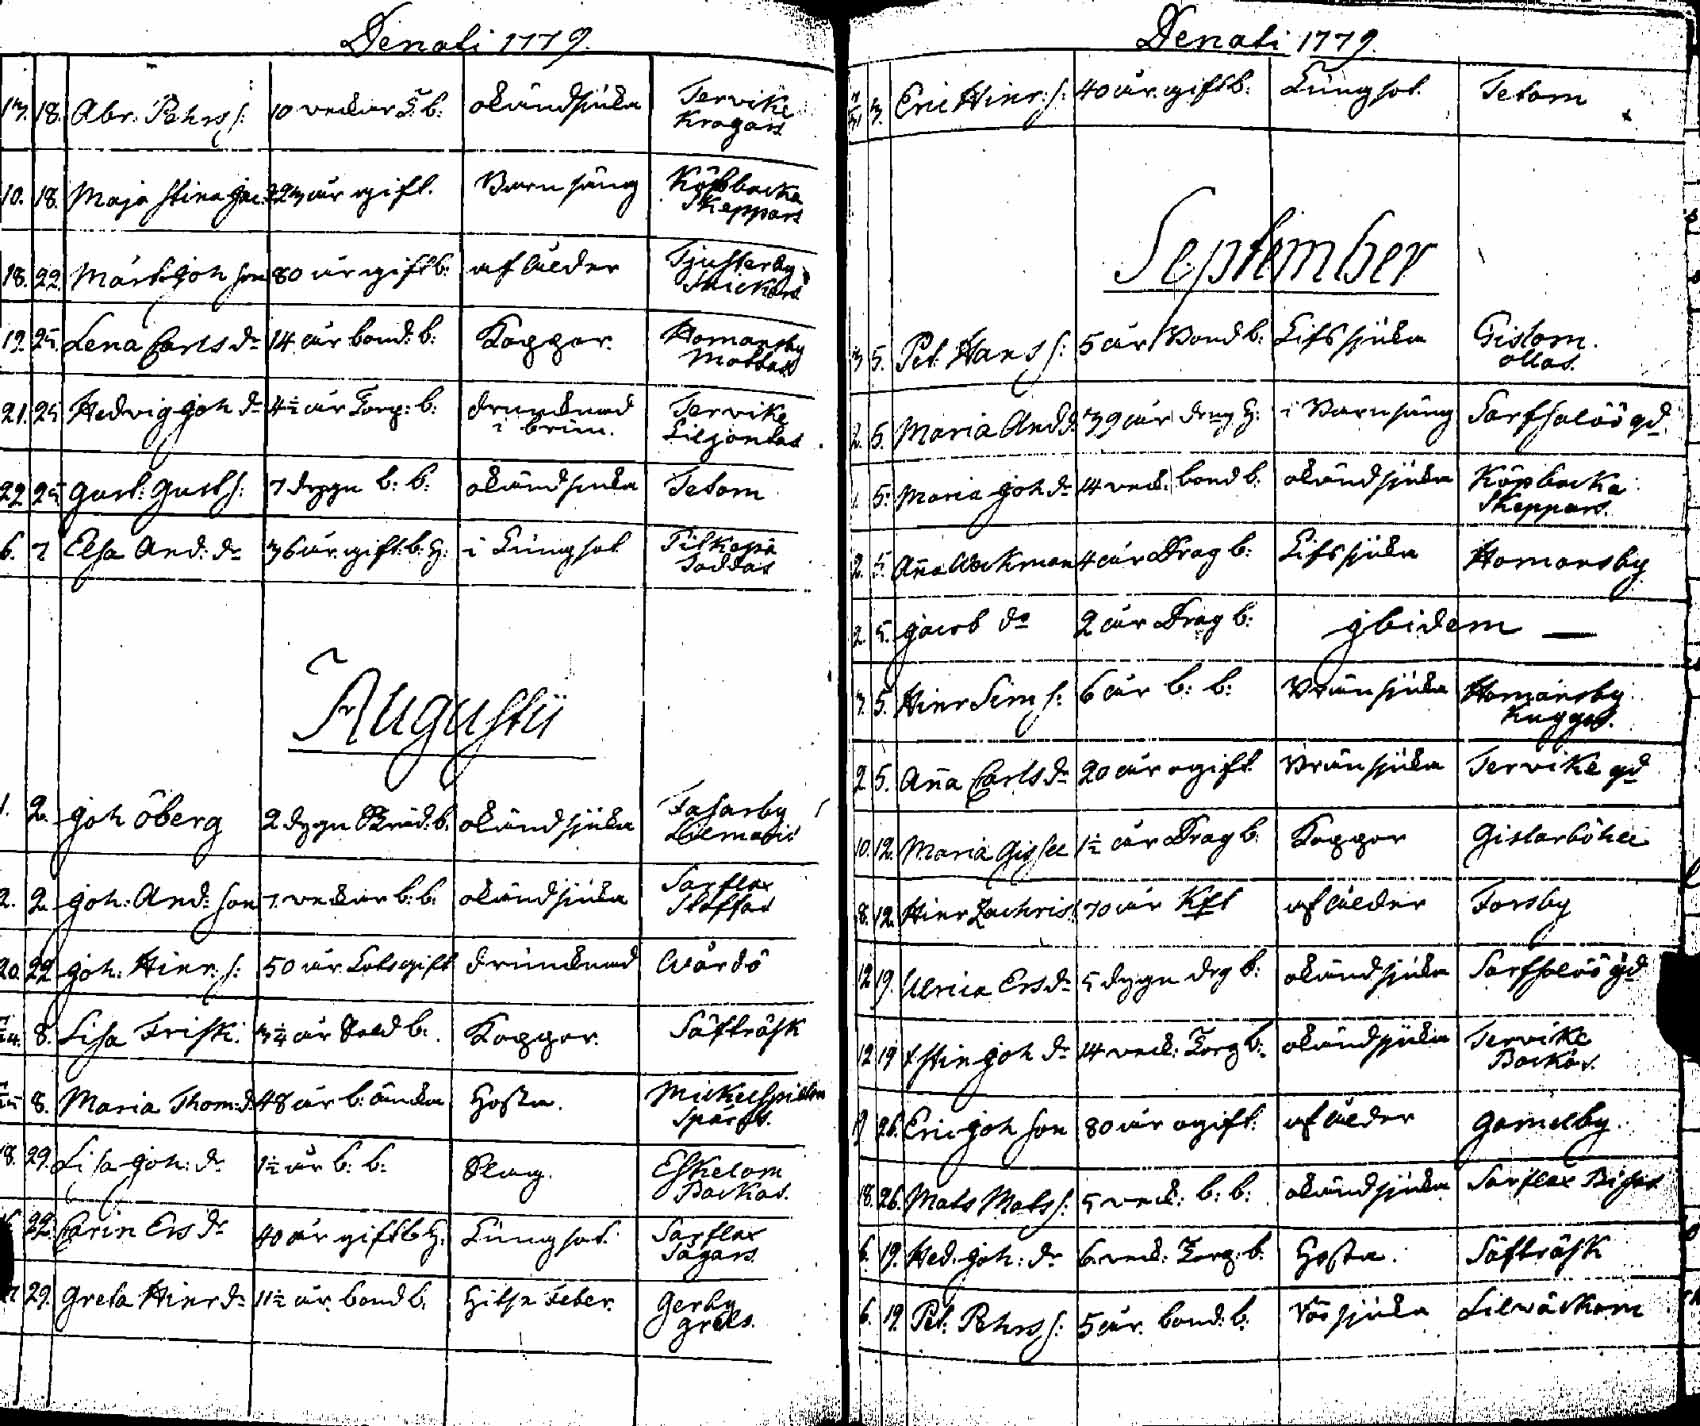 Denati 1779.
13. 18. Abr: Pehrs s: 10 veckor T. b: okänd sjuka Tervike
Krogars
10. 18. Maja Stina år ogift. Barnsäng Köpbacka
Skeppars
18. 22. Mårt. Joh son 80 år gift b: af ålder Tjusterby
19. 25 Lena Carls dr 14 år bond: b: Koppor. Homansby
Mattas
21. 25 Hedvig Joh dr 4½ år Torp: b: drunknad Tervike
i brun. Liljendas
22 25 Gust: Gusts s: 7 dygn b: b: okänd sjuka Tetom
6. 7 Elsa And: dr 36 år gift: b: h: i Lungsot Pilkapä
Jaddas
Augustii
1. 2. Joh Öberg 2 dygn b. okänd sjuka Fasarby
2. 2. Joh: And: son 7 veckor b: b. okänd sjuka Sarflax
Stoffas
20. 22 Joh: Hinr: s: 50 år Lots gift drunknad Vårdö
8. Lisa Frisk: 3¼ år Sold b: Koppor. Säfträsk
8. Maria Thom: d. 48 år b: änka Hosta. Mickelspiltom
18. 29. Lisa Joh: dr 1½ år b: b: Slag. Eskelom
Backas.
22. Carin Ers dr 40 år gift b h: Lungsot. Sarflax
Sågars
29. Greta Hinr dr 11½ år. bond b. Hitsa feber. Gerby
Denati 1779.
3. Eric Hinr: s: 40 år. gift b: Lungsot. Tetom
September
3 5. Pet. Hans s: 5 år Bond b: Lifssjuka Gislom.
Ollas.
2. 5. Maria And d. 39 år dreng h: i Barnsäng Sarfsalöö gd
1. 5. Maria Joh dr 14 veck: bond b: okänd sjuka Köpbacka
Skeppars.
2. 5. Aña Wackman 4 år Drag b: Lifssjuka Homansby
2. 5. Jacob do 2 år Drag b: Jbidem —
3. 5. Hinr Sim s: 6 år b: b: Bränsjuka Homansby
Kuggas.
2 5. Aña Carls dr 20 år ogift Bränsjuka Tervike gd
10. 12. Maria 1½ år Drag b: Koppor Gislarböhle
8. 12. Hinr Zachris s. 70 år Kft af ålder Forsby
12 19. Ulrica Ers dr 5 dygn drg b: okänd sjuka Sarfsalöö gd
12 19 Stin Joh dr 14 veck: Torp b: okänd sjuka Tervike
Backas.
26. Eric Joh son 80 år ogift. af ålder Gamelby.
18. 26. Mats Mats s: 5 veck: b: b: okänd sjuka Sarflax
6. 19. Hed. Joh: dr 6 veck: Torp: b. Hosta. Säfträsk
6. 19. Pet: Pehrs s: 5 år. bond: b. sjuka Lilwäckom